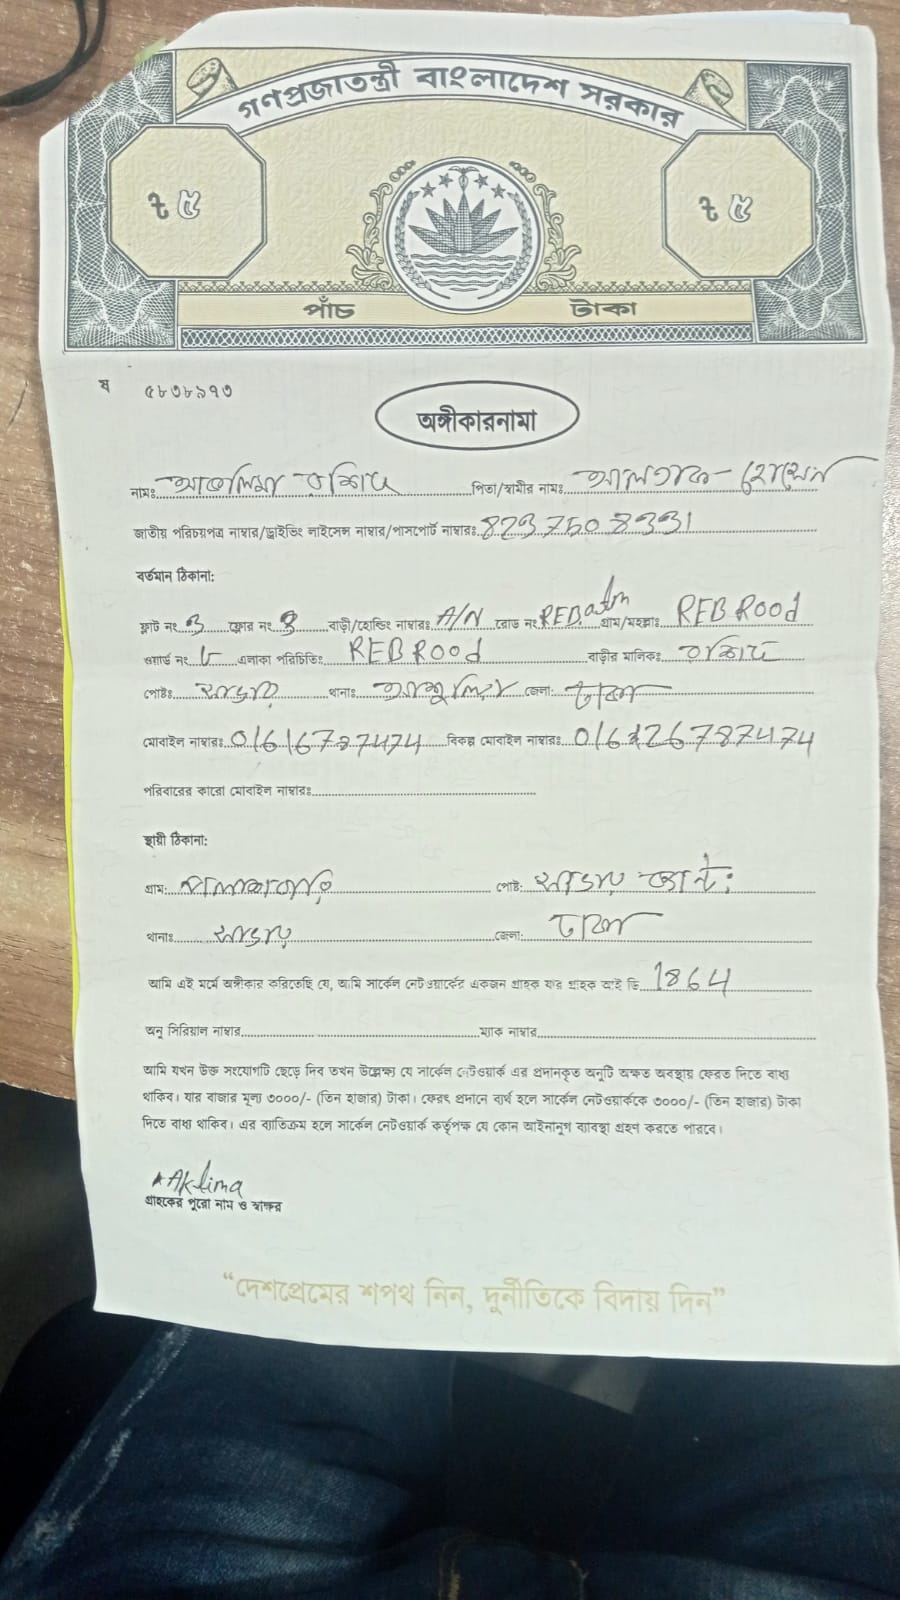 গণপ্রজাতন্ত্রী বাংলাদেশ সরকার
৳ ৫ ৳ ৫
পাঁচ টাকা
ষ ৫৮৩৮৯৭৩
অঙ্গীকারনামা
নামঃ পিতা/স্বামীর নামঃ হোসেন
জাতীয় পরিচয়পত্র নাম্বার/ড্রাইভিং লাইসেন্স নাম্বার/পাসপোর্ট নাম্বারঃ 8237508331
বর্তমান ঠিকানা:
ফ্লাট নং 3 ফ্লোর নং বাড়ী/হোল্ডিং নাম্বারঃ A/N রোড নং REB গ্রাম/মহল্লাঃ REB ROOd
ওয়ার্ড নং এলাকা পরিচিতিঃ REB ROOd বাড়ীর মালিকঃ রশিদ
পোষ্টঃ সাভার থানাঃ আশুলিয়া জেলা: ঢাকা
মোবাইল নাম্বারঃ 01616787474 বিকল্প মোবাইল নাম্বারঃ
পরিবারের কারো মোবাইল নাম্বারঃ
স্থায়ী ঠিকানা:
গ্রাম: পোষ্ট: সাভার ক্যান্ট:
থানাঃ সাভার জেলা: ঢাকা
আমি এই মর্মে অঙ্গীকার করিতেছি যে, আমি সার্কেল নেটওয়ার্কের একজন গ্রাহক যার গ্রাহক আই ডি 1864
অনু সিরিয়াল নাম্বার ম্যাক নাম্বার
আমি যখন উক্ত সংযোগটি ছেড়ে দিব তখন উল্লেক্ষ্য যে সার্কেল নেটওয়ার্ক এর প্রদানকৃত অনুটি অক্ষত অবস্থায় ফেরত দিতে বাধ্য
থাকিব। যার বাজার মূল্য ৩০০০/- (তিন হাজার) টাকা। ফেরৎ প্রদানে ব্যর্থ হলে সার্কেল নেটওয়ার্ককে ৩০০০/- (তিন হাজার) টাকা
দিতে বাধ্য থাকিব। এর ব্যতিক্রম হলে সার্কেল নেটওয়ার্ক কর্তৃপক্ষ যে কোন আইনানুগ ব্যবস্থা গ্রহণ করতে পারবে।
Aklima
গ্রাহকের পুরো নাম ও স্বাক্ষর
“দেশপ্রেমের শপথ নিন, দুর্নীতিকে বিদায় দিন”